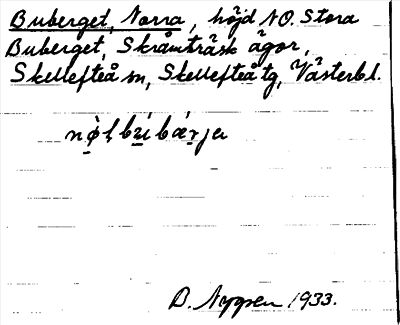 Buberget, Norra, höjd NO. Stora
Buberget, Skråmträsk ägor,
Skellefteå sn, Skellefteå tg, Västerb l.
B. Nygren 1933.